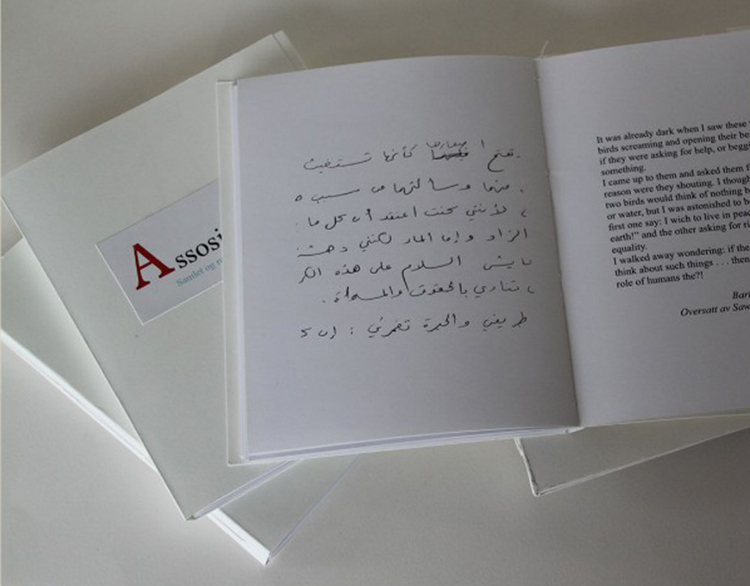 Assosi
Samlet og
تفتح ا منقارها كأنها تستغيث
منها وسألتها عن سبب
لأنني كنت أعتقد أن كل ما
الزاد وإما الماء لكنني دهشت
السلام على هذه
تنادي بالحقوق والمساواة.
طريقي والحيرة تغمرني : إن
It was already dark when I saw these
birds screaming and opening their be
if they were asking for help, or beggi
something.
I came up to them and asked them f
reason were they shouting. I though
two birds would think of nothing b
or water, but I was astonished to h
first one say: I wish to live in peac
earth!” and the other asking for
equality.
I walked away wondering: if the
think about such things . . . then
role of humans the?!
Bar
Oversatt av Saw